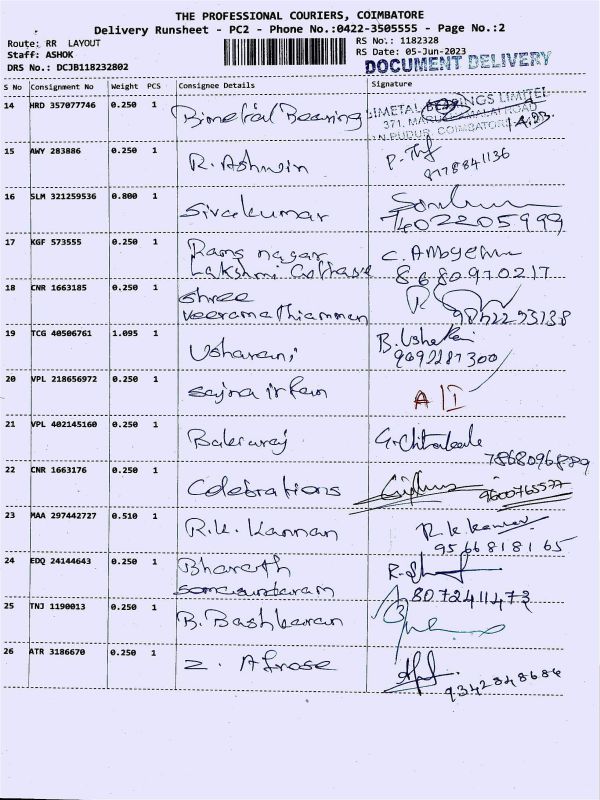 THE PROFESSIONAL COURIERS, COIMBATORE
Delivery Runsheet - PC2 - Phone No.:0422-3505555 - Page No.:2
Route: RR LAYOUT
RS No.: 1182328
Staff: ASHOK
RS Date: 05-Jun-2023
DRS No.: DCJB118232802
DOCUMENT DELIVERY
S No Consignment No Weight PCS Consignee Details Signature
14 HRD 357077746 0.250 1 Bimetal Bearing
BIMETAL BEARINGS LIMITED
371, MARUDHAMALAI ROAD
COIMBATORE
15 AWY 283886 0.250 1 R. Ashwin
9178841136
16 SLM 321259536 0.800 1 Sivakumar
7402205999
17 KGF 573555 0.250 1 Rams nagar
Lakshmi
8680970217
18 CNR 1663185 0.250 1 Shree
Veeramathiamman
19 TCG 40506761 1.095 1 Usharani B. Usha
9092287300
20 VPL 218656972 0.250 1 Sajna irfan
21 VPL 402145160 0.250 1 Balraraj
7868096889
22 CNR 1663176 0.250 1 Celebrations
9600765577
23 MAA 297442727 0.510 1 R.K. Kannan R K Kannan
9566818165
24 EDQ 24144643 0.250 1 Bharath
Somasundaram
8072411473
25 TNJ 1190013 0.250 1 B. Baskaran
26 ATR 3186670 0.250 1 Z. Afrose
9342848686